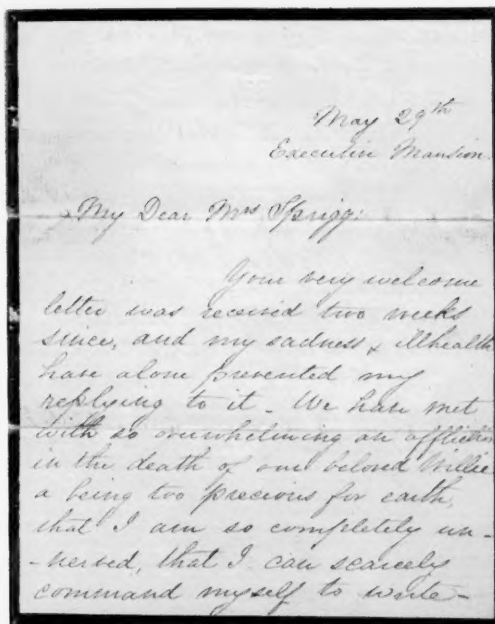 May 29th
Executive Mansion.
My Dear Mrs Sprigg:
Your very welcome
letter was received two weeks
since, and my sadness & illhealth
have alone prevented my
replying to it - We have met
with so overwhelming an affliction
in the death of our beloved Willie
a being too precious for earth,
that I am so completely un-
-nerved, that I can scarcely
command myself to write -